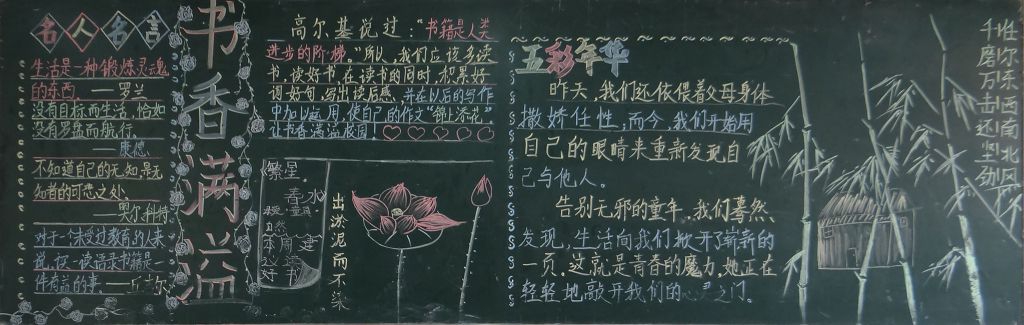 名人名言
生活是一种锻炼灵魂
的东西。——罗兰
没有目标而生活,恰如
没有罗盘而航行。
——康德
不知道自己的无知,是无
知者的可悲之处
——奥尔科特
对于一个未受过教育的人来
说,
件有益的事。
书香满溢
高尔基说过:“书籍是人类
进步的阶梯。”所以,我们应该多读
书,读好书,在读书的同时,积累好
词好句,写出读后感,并在以后的写作
中加以运用,使自己的作文“锦上添花”
让书香满溢校园!
繁星
春水
出淤泥而不染
五彩年华
昨天,我们还依偎着父母身体
撒娇任性;而今,我们开始用
自己的眼睛来重新发现自
己与他人。
告别无邪的童年,我们蓦然
发现,生活向我们掀开了崭新的
一页,这就是青春的魔力,她正在
轻轻地敲开我们的心灵之门。
千磨万击还坚劲
尔东西南北风